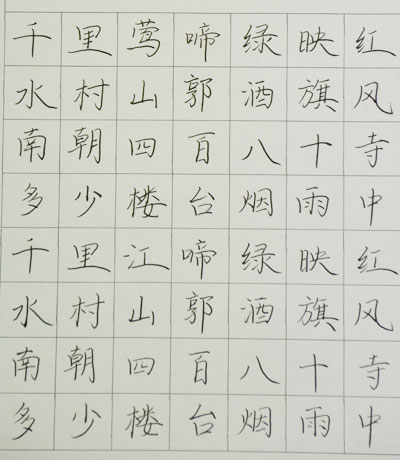 千里莺啼绿映红
水村山郭酒旗风
南朝四百八十寺
多少楼台烟雨中
千里江啼绿映红
水村山郭酒旗风
南朝四百八十寺
多少楼台烟雨中